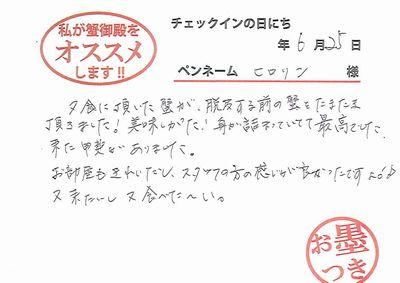 私が蟹御殿を
オススメ
します!!
チェックインの日にち
年 6 月 25 日
ペンネーム ヒロリン 様
夕食に頂いた蟹が、脱皮する前の蟹をたまたま
頂きました!美味しかた!身が詰まっていて最高でした。
来た甲斐がありました。
お部屋もきれいだし、スタッフの方の感じが良かったです
又来たいし又食べた〜い。
お墨
つき